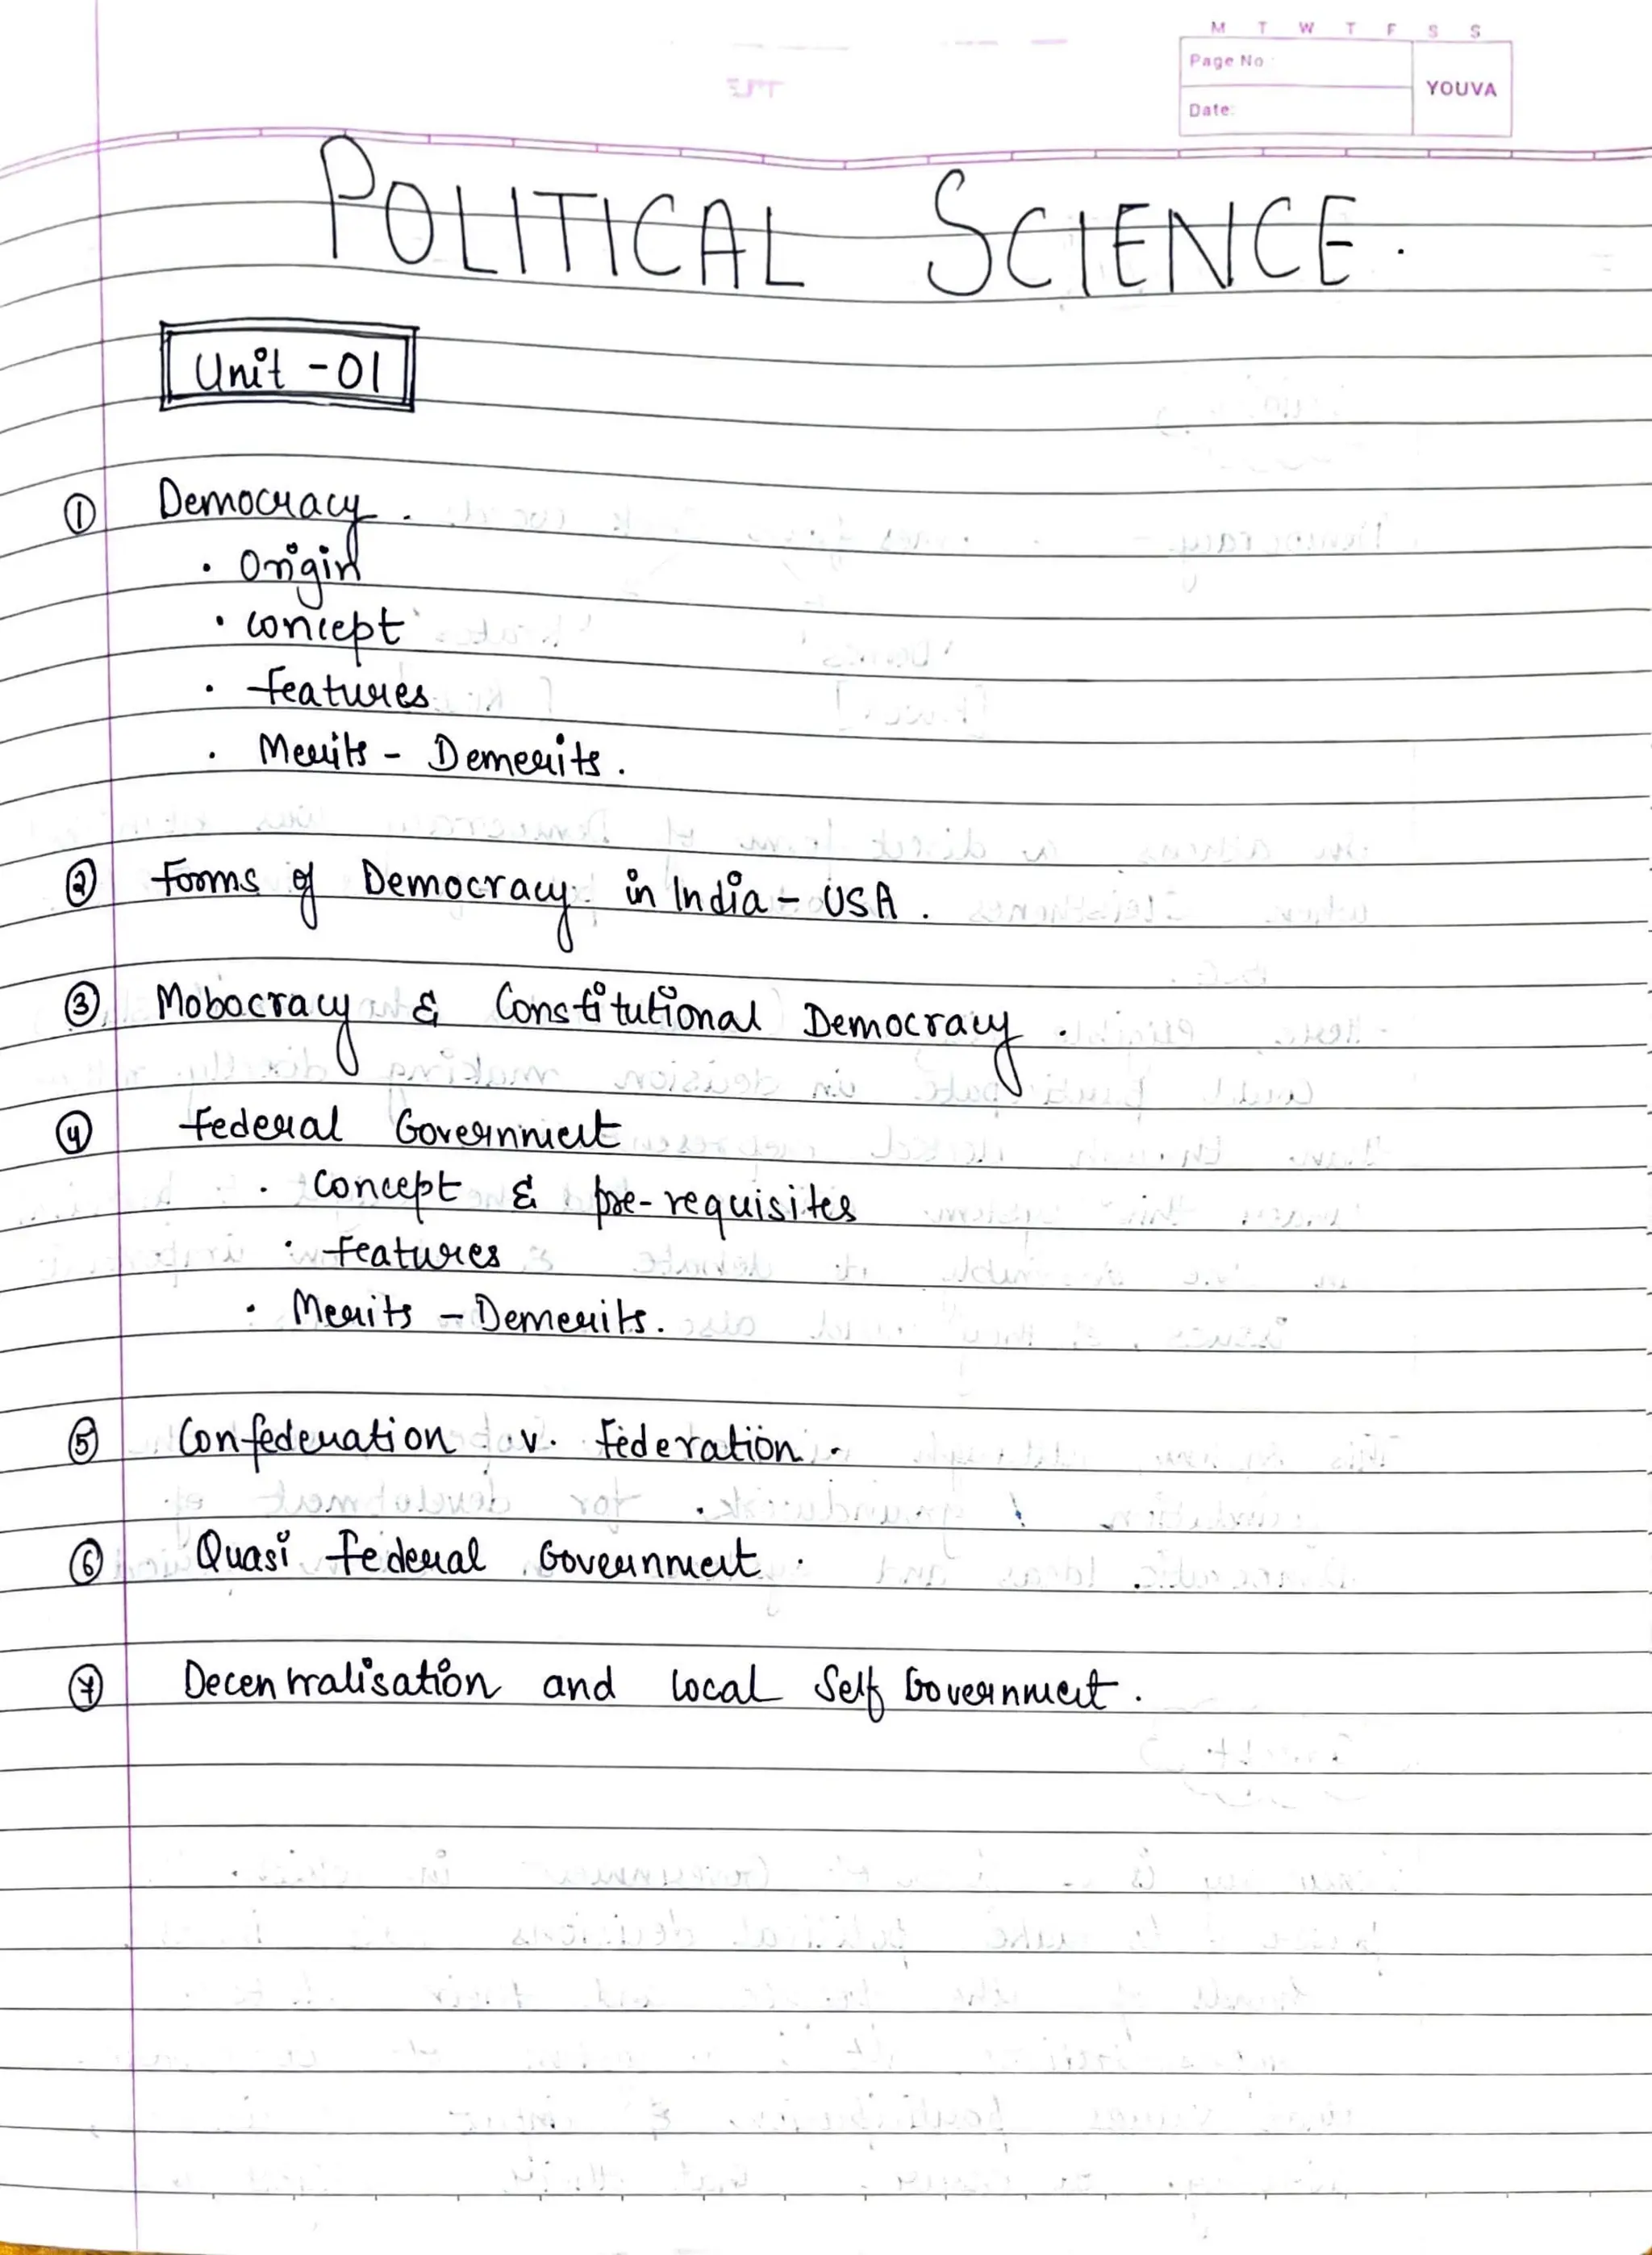 M T W T F S S
Page No
YOUVA
Date:
POLITICAL SCIENCE.
Unit -01
① Democracy.
• Origin
• concept
• features
• Merits - Demerits.
② Forms of Democracy in India - USA.
③ Mobocracy & Constitutional Democracy.
④ Federal Government
• Concept & pre-requisites
• features
• Merits - Demerits.
⑤ Confederation v. Federation.
⑥ Quasi Federal Government.
⑦ Decentralisation and local Self Government.